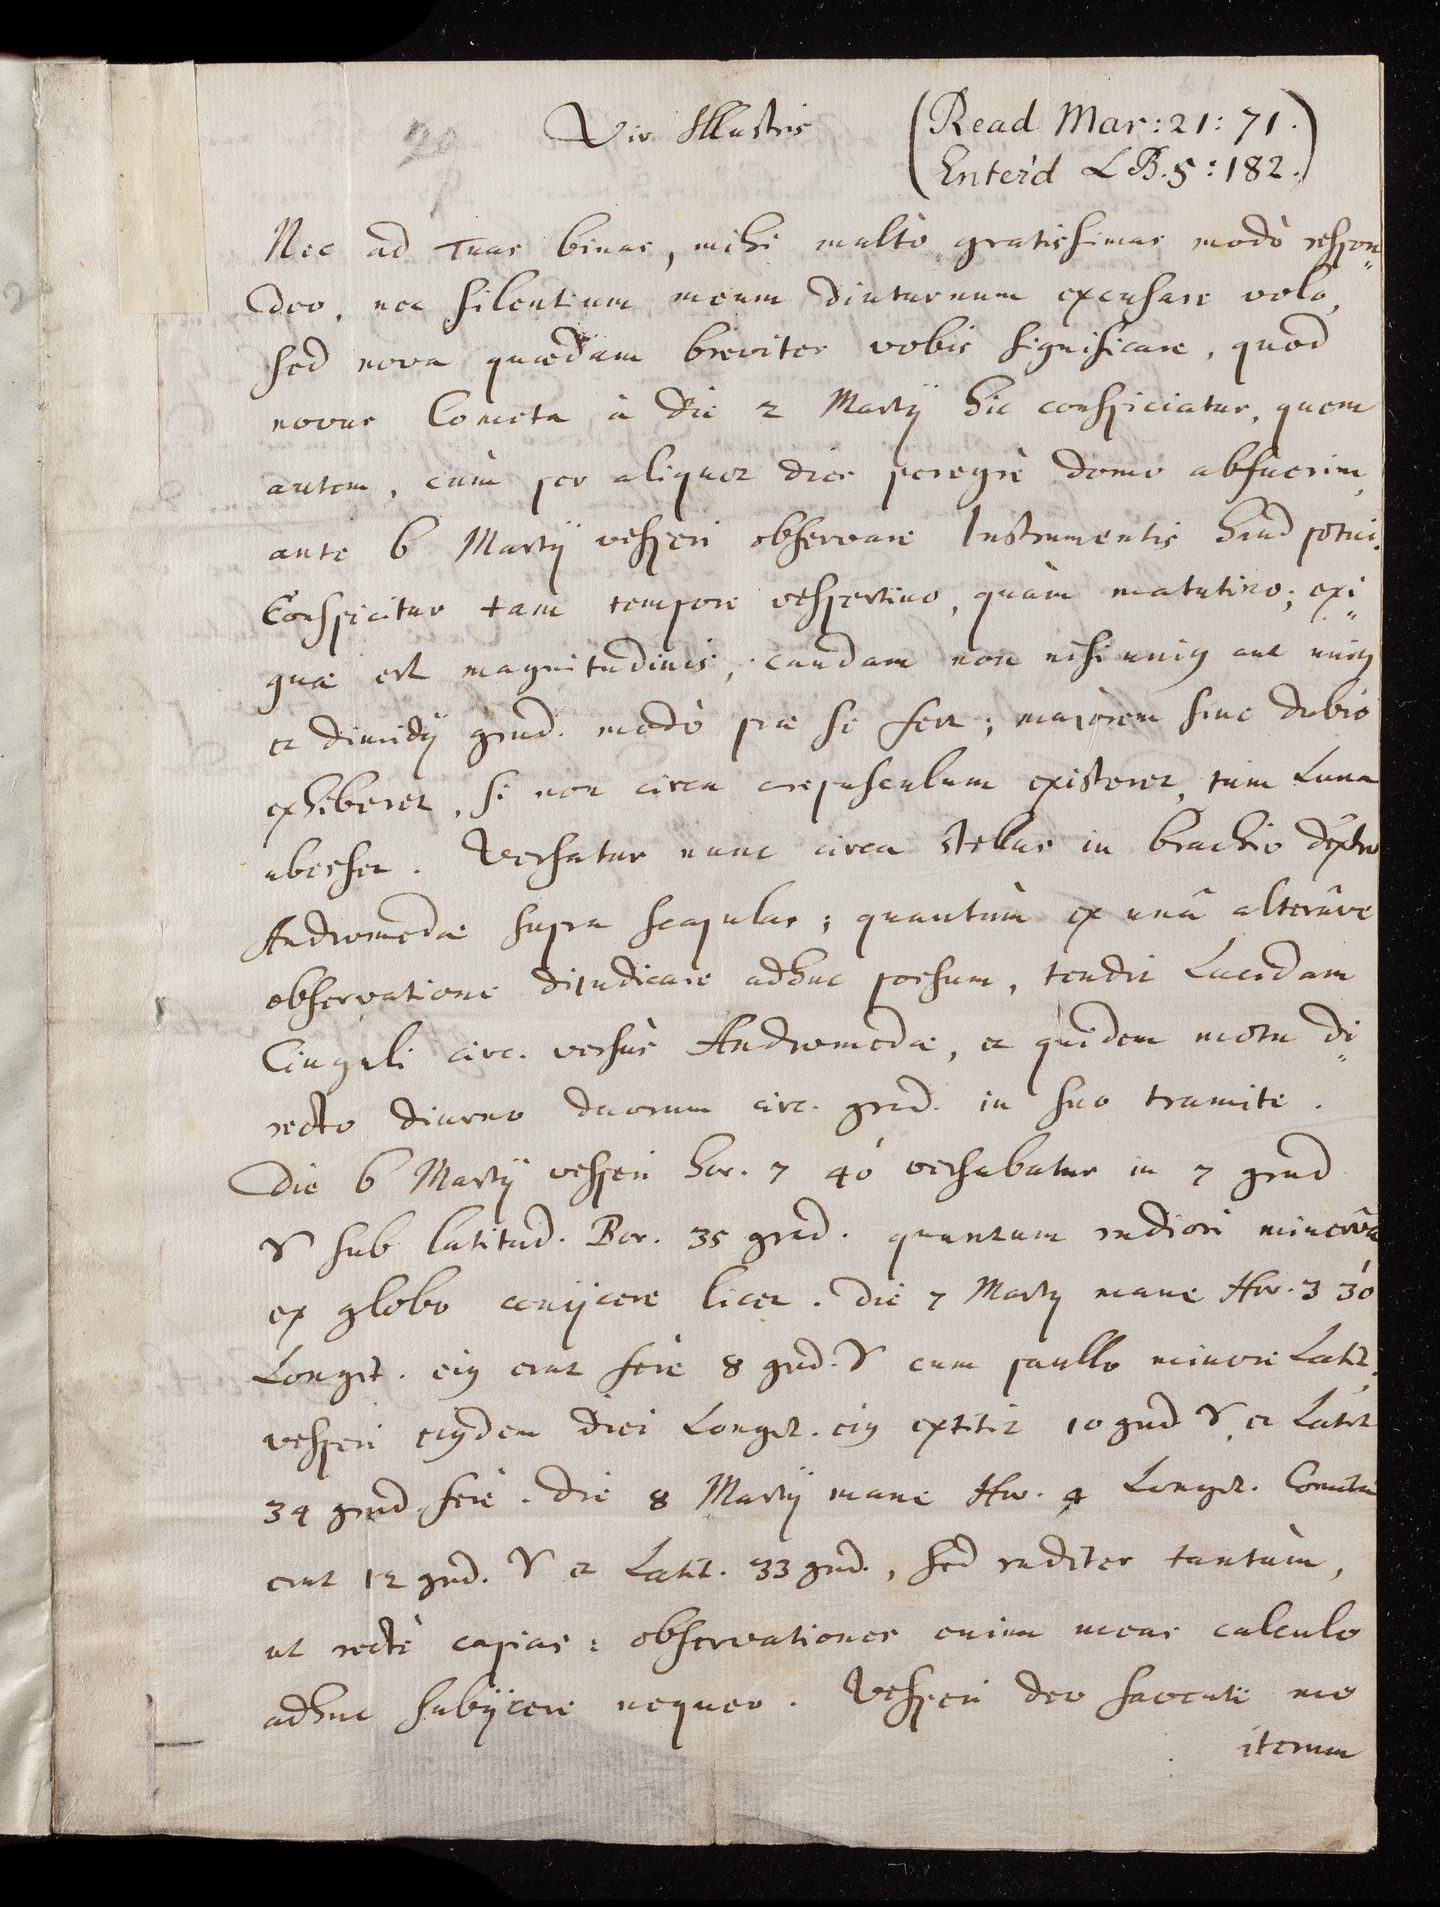 20
Vir Illustris
(Read Mar: 21: 71.
Enter'd LB. 5: 182.)
Nec ad Tuas binas, mihi multò gratissimas modò respon„
deo, nec silentium meum diuturnum excusare volo,
sed nova quædam breviter vobis significare, quod
novus Cometa à die 2 Martij hic conspiciatur, quem
autem, cùm per aliquot dies peregrè domo abfuerim,
ante 6 Martij vesperi observare Instrumentis haud potui.
Conspicitur tam tempore vespertino, quàm matutino; exi„
guæ est magnitudinis, caudam non nisi unius aut unius
et dimidij grad. modò præ se fert; majorem sine dubio
exhiberet, si non circa crepusculum existeret, tum Luna
abesset. Versatur nunc circa stellas in brachio dextro
Andromedæ supra scapulas; quantùm ex unâ alterâve
observatione dijudicare adhuc possum, tendit Lucidam
Cinguli circ. versùs Andromedæ, et quidem motu di„
recto diurno duorum circ. grad. in suo tramite.
Die 6 Martij vesperi hor. 7 40' versabatur in 7 grad
♈ sub latitud. Bor. 35 grad. quantum rudiori minervâ
ex globo conijcere licet. Die 7 Martij mane Hor. 3 30'
Longit. eius erat ferè 8 grad. ♈ cum paullo minore Latit.
vesperi eiusdem diei Longit. eius extitit 10 grad ♈ et Latit
34 grad ferè. Die 8 Martij mane Hor. 4 Longit. Cometæ
erat 12 grad. ♈ et Latit. 33 grad., sed ruditer tantùm,
ut rectè capias: observationes enim meas calculo
adhuc subijcere nequeo. Vesperi deo favente me
iterum